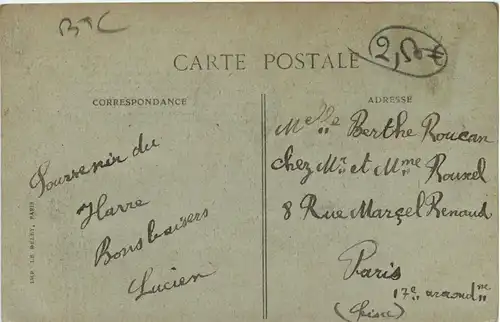 BTC
2,50€
CARTE POSTALE
CORRESPONDANCE
ADRESSE
Souvenir du
Havre
Bons baisers
Lucien
Melle Berthe Roucan
chez Mr et Mme Rouxel
8 Rue Marçel Renaud
Paris
17e arrond ne
(Seine)
IMP. LE DELEY, PARIS